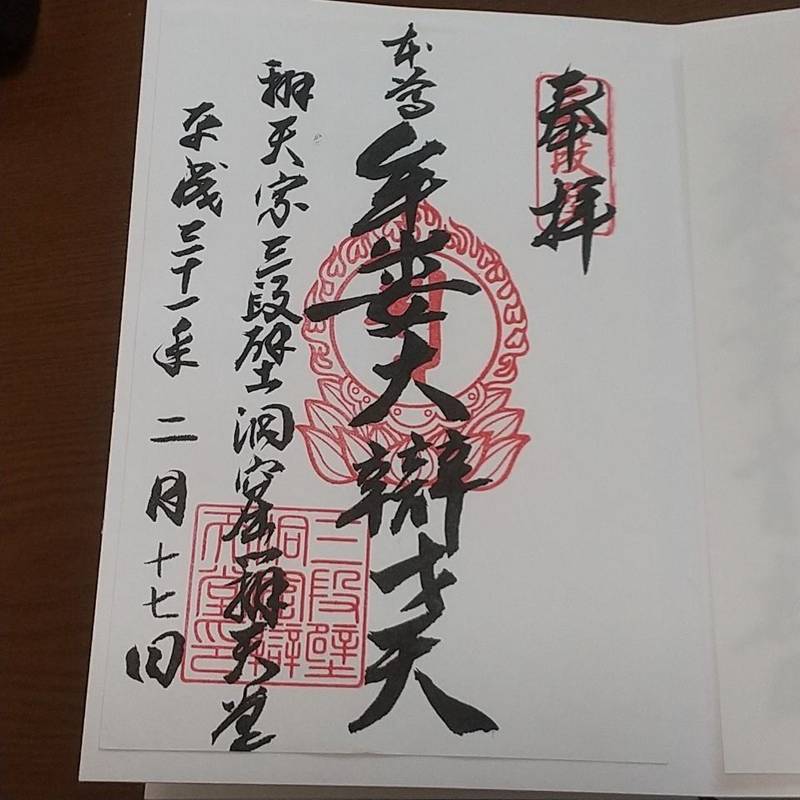 奉拝
本尊
牟婁大辯才天
辯天窟三段壁洞窟辯天堂
平成三十一年二月十七日
三段壁
洞窟辯
天堂印